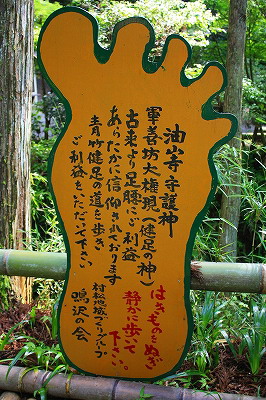 油山寺守護神
軍善坊大権現(健足の神)
古来より足腰にご利益
あらたかに信仰されております
青竹健足の道を歩き
ご利益をいただいて下さい
はきものをぬぎ
静かに歩いて
下さい。
村松地域づくりグループ
鳴沢の会